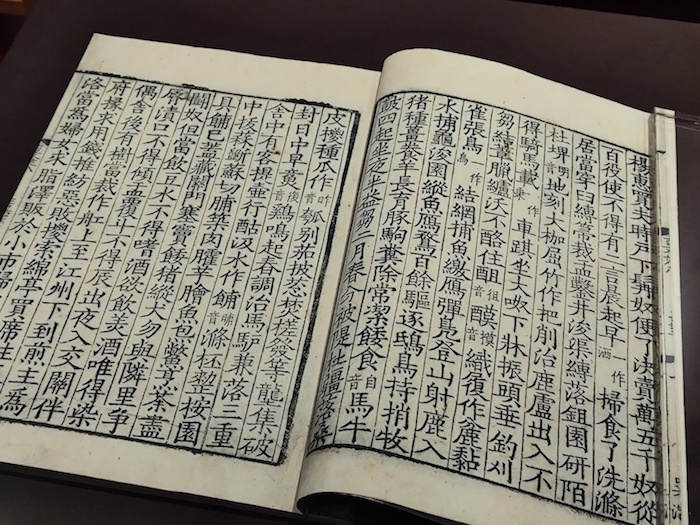 楊惠買夫時戶下髯奴便了決賣萬五千奴從
百役使不得有二言晨起早一作洒掃食了洗滌
居當穿臼縛箒裁盂鑿井浚渠縛落鉏園研陌
杜埤地刻大枷屈竹作杷削治鹿盧出入不
得騎馬載一作乘車踑坐大呶下牀振頭垂釣刈
芻結葦臘纑沃不酪住音徂音摸織履作麄黏
雀張鳥一作烏結網捕魚繳鴈彈鳧登山射鹿入
水捕龜浚園縱魚鴈鶩百餘驅逐鴟鳥持捎牧
猪種薑養芋長育豚駒糞除常潔餧食音自馬牛
鼓四起坐夜半益芻二月春分被隄杜疆落桑
皮㯶種瓜作瓠別茄披葱焚槎發芋龍集破
封日中早鷄鳴起舂調治馬驢兼落三重
舍中有客提壺行酤汲水作餔音哺滌杯整按園
中拔蒜斷蘇切脯築肉臛芋膾魚炰鱉烹茶盡
具餔已蓋藏關門塞竇餧猪縱犬勿與隣里爭
鬪奴但當飯豆水不得嗜酒欲飲美酒唯得染
脣漬口不得傾盂覆斗不得晨出夜入交關伴
偶舍後有樹當裁作舡上至江州下到前主為
府掾求用錢推紡惡敗㯶索綿亭買席往
洛當為婦女求脂澤販於小市歸